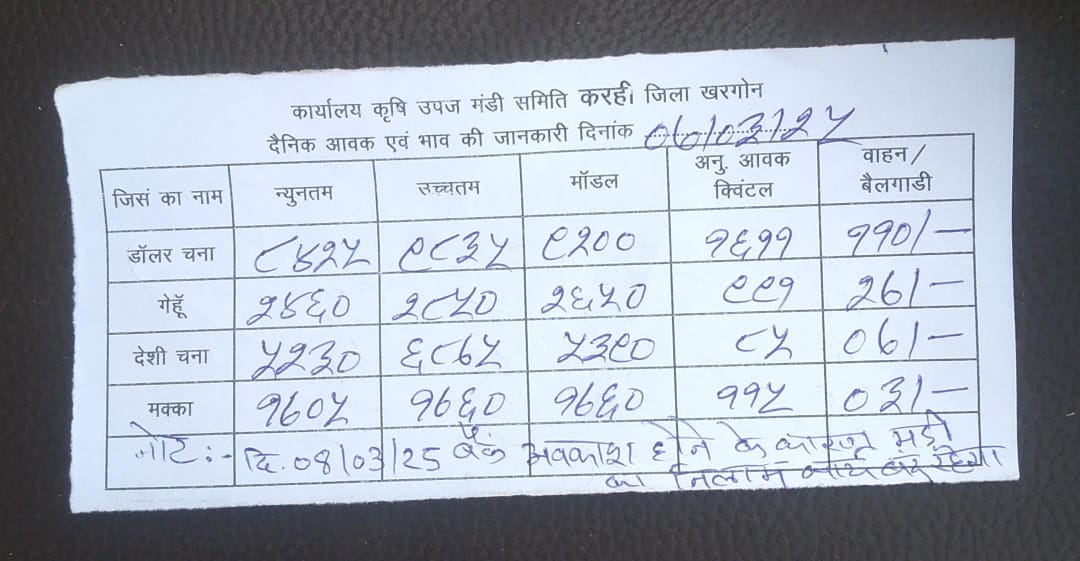 कार्यालय कृषि उपज मंडी समिति करही जिला खरगोन
दैनिक आवक एवं भाव की जानकारी दिनांक ०७/०३/२५
जिसं का नाम न्युनतम उच्चतम मॉडल अनु. आवक क्विंटल वाहन/ बैलगाडी
डॉलर चना ८४२५ ९८३५ ९२०० १६११ ११०/-
गेहूॅ २४६० २८५० २६५० ९९१ २७/-
देशी चना ५२३० ६८७५ ५३९० ८५ ०७/-
मक्का १७०५ १७६० १७६० ११५ ०३/-
नोट:- दि. 08/03/25 बैंक अवकाश होने के कारण मंडी
का निलाम कार्य बंद रहेगा